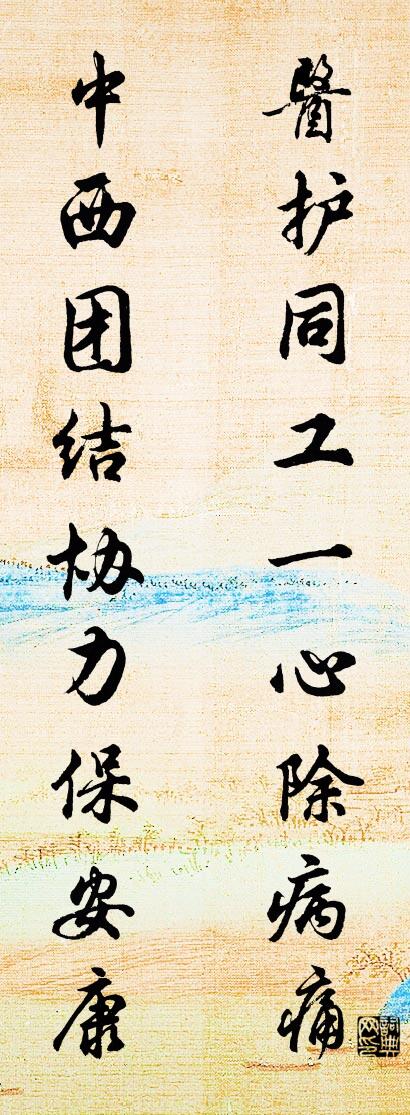 醫护同工一心除病痛
中西团结协力保安康